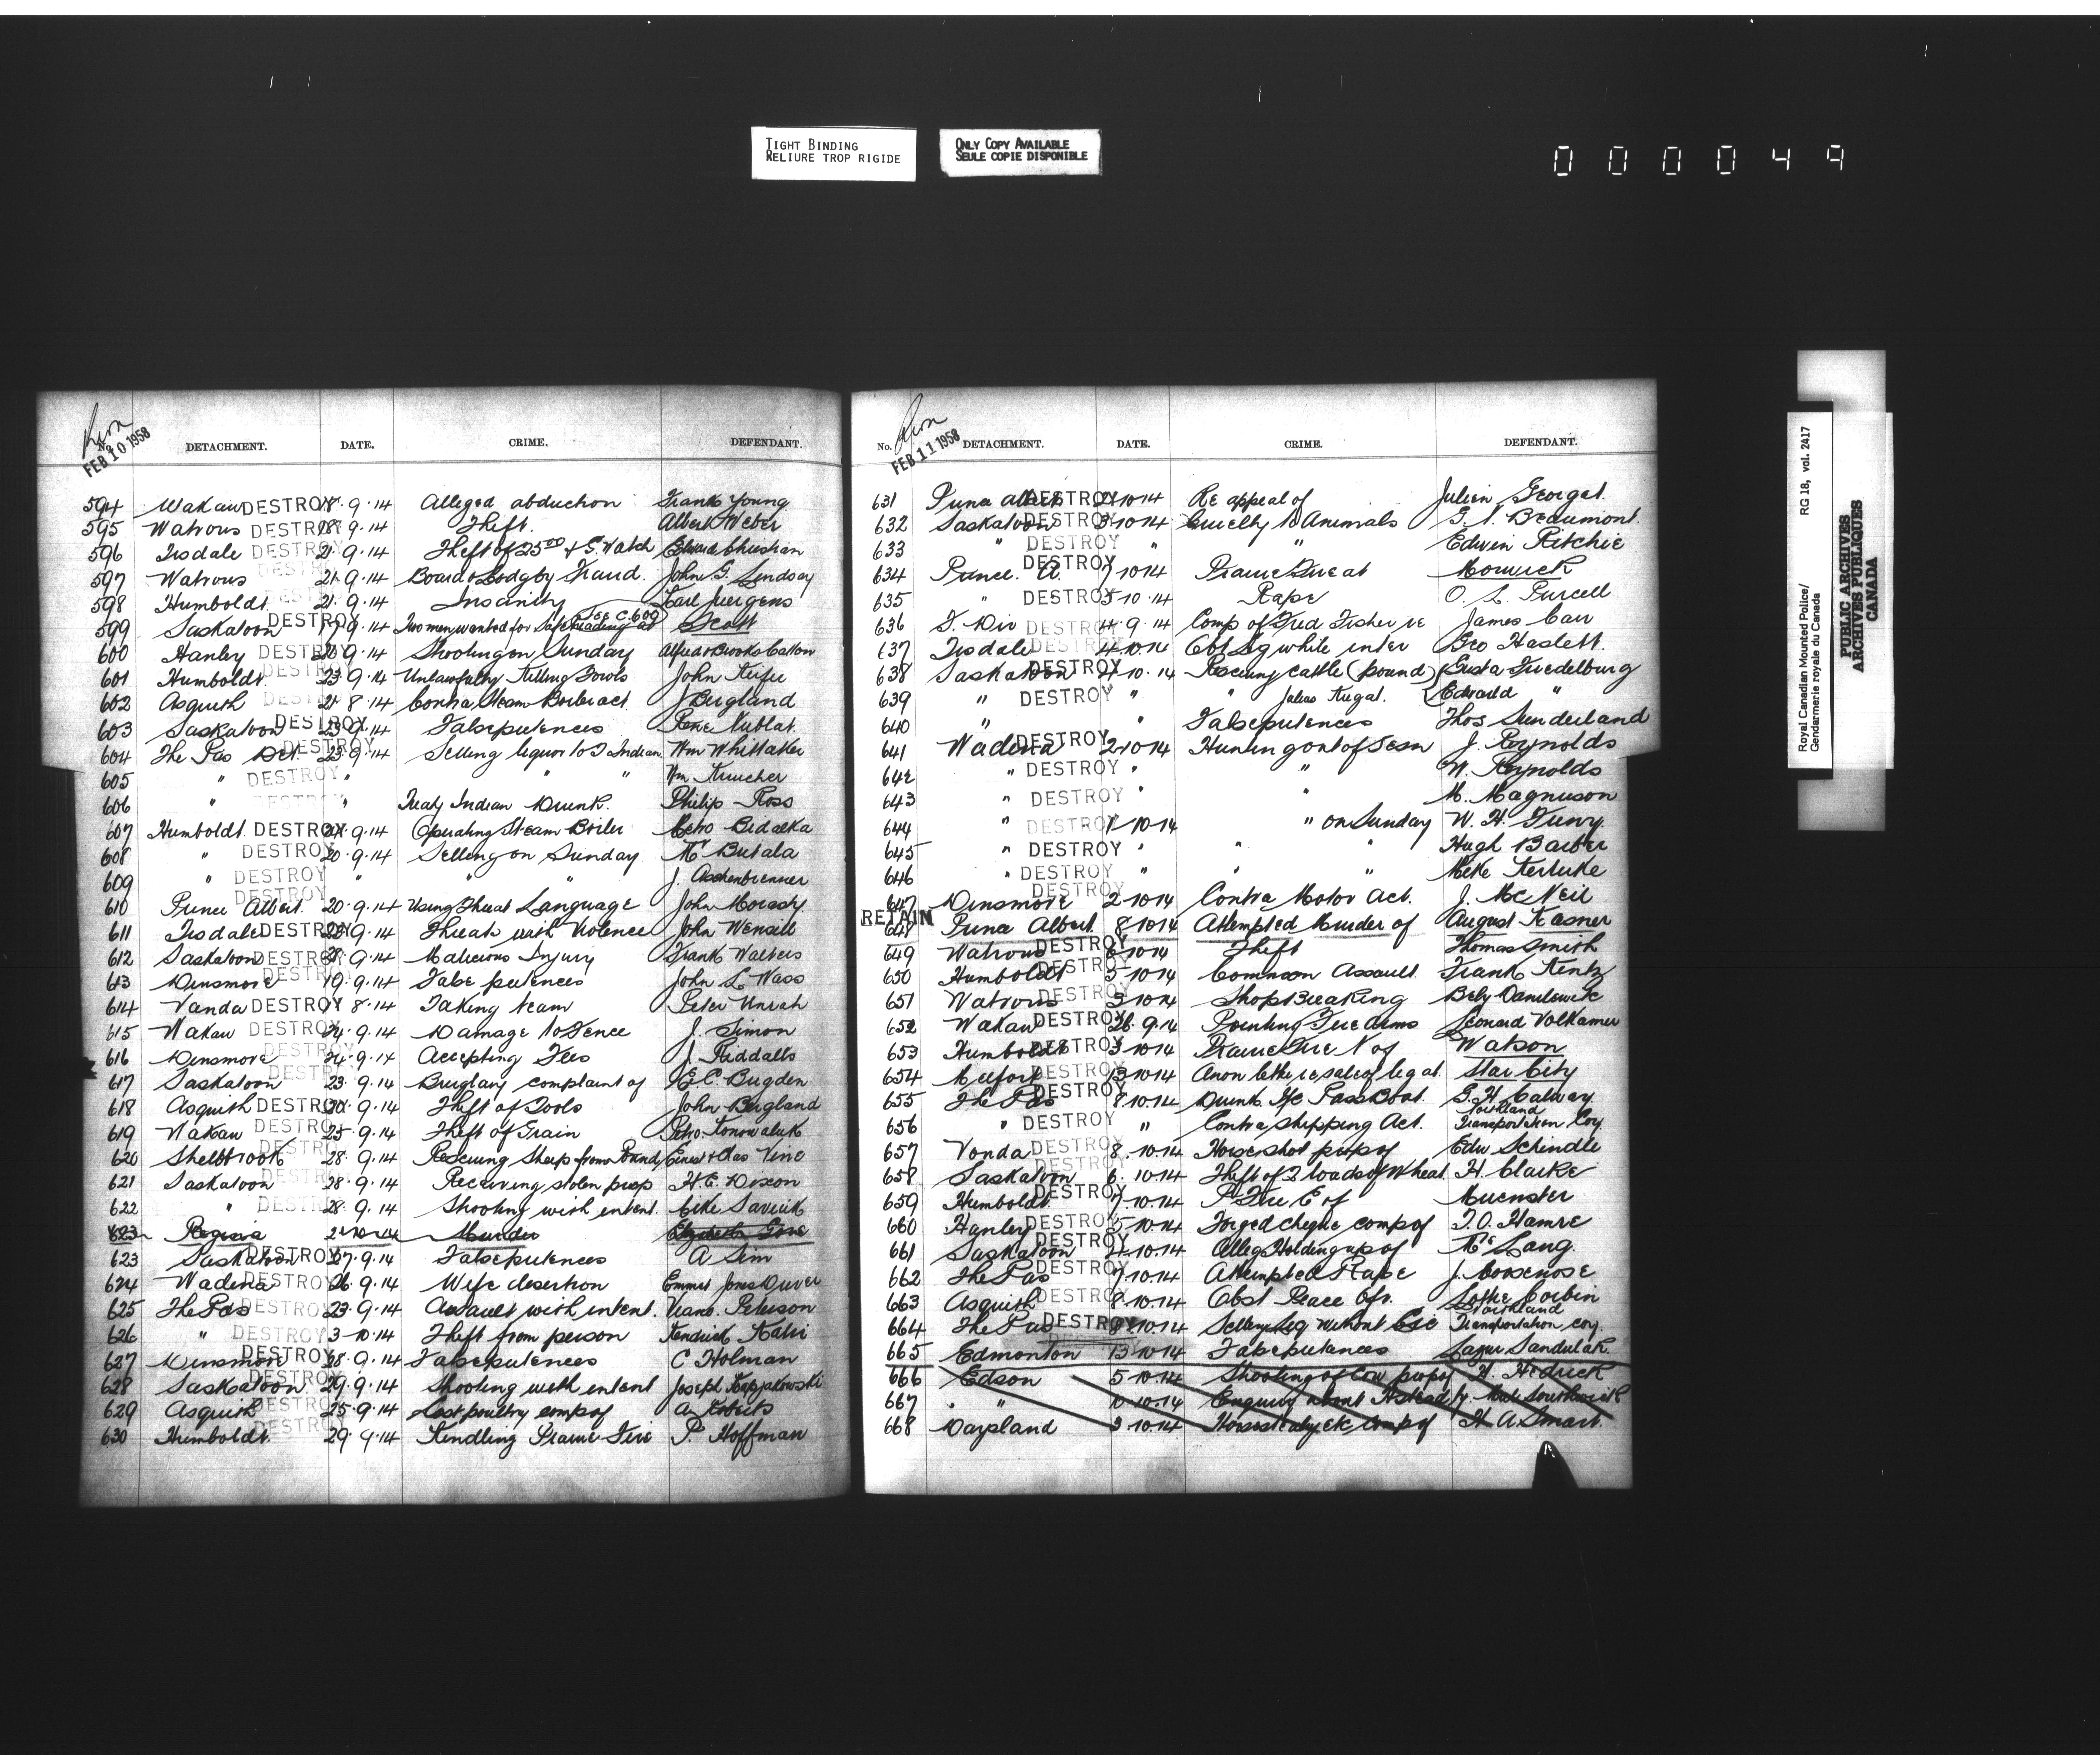 TIGHT BINDING
RELIURE TROP RIGIDE
ONLY COPY AVAILABLE
SEULE COPIE DISPONIBLE
000049
Royal Canadian Mounted Police/
Gendarmerie royale du Canada
RG 18, vol. 2417
PUBLIC ARCHIVES
ARCHIVES PUBLIQUES
CANADA
FEB 10 1958
DETACHMENT. DATE. CRIME. DEFENDANT.
594 Wakaw DESTROY 18.9.14 Alleged abduction Frank Young
595 Watrous DESTROY 18.9.14 Theft. Albert Weber
596 Tisdale DESTROY 21.9.14 Theft of 25.00 & G. Watch Edward Christian
597 Watrous DESTROY 21.9.14 Board & Lodg by Fraud. John G. Lindsay
598 Humboldt 21.9.14 Insanity Karl Juergens
599 Saskatoon DESTROY 17.9.14 Two men wanted for Safe at Scott
See C.609
600 Hanley DESTROY 20.9.14 Shooting on Sunday Alfred Brooks Catton
601 Humboldt DESTROY 23.9.14 Unlawfully Killing Fowls John Keifer
602 Asquith DESTROY 21.8.14 Contra Steam Boiler act. J Bergland
603 Saskatoon DESTROY 23.9.14 False pretences Rene Nublat
604 The Pas Det. DESTROY 23.9.14 Selling liquor to T Indian Wm Whittaker
605 " DESTROY " " " Wm
606 " DESTROY " Treaty Indian Drunk. Philip Ross
607 Humboldt DESTROY 9.14 Operating Steam Boiler Metro Bidalka
608 " DESTROY 20.9.14 Selling on Sunday Butala
609 " DESTROY " " " J. Aschenbrenner
610 Prince Albert DESTROY 20.9.14 Using Threat Language John Morasty
611 Tisdale DESTROY 9.14 Threats with Violence John Wensell
612 Saskatoon DESTROY 9.14 Malicious Injury Frank Walters
613 Dinsmore DESTROY 19.9.14 False pretences John L. Wass
614 Vonda DESTROY 8.14 Taking team Peter Unrah
615 Wakaw DESTROY 24.9.14 Damage to Fence J. Simon
616 Dinsmore DESTROY 24.9.14 Accepting Fees J. Riddalls
617 Saskatoon DESTROY 23.9.14 Burglary complaint of E.C. Bugden
618 Asquith DESTROY 9.14 Theft of Tools John Bergland
619 Wakaw DESTROY 25.9.14 Theft of Grain Petro Konowaluk
620 Shellbrook DESTROY 28.9.14 Rescuing Sheep from Pound Ernest & Chas Vine
621 Saskatoon DESTROY 28.9.14 Receiving stolen prop H.E. Dixon
622 " DESTROY 28.9.14 Shooting with intent. Savick
623 Regina 2-10-14 Murder Elizabeth
623 Saskatoon DESTROY 27.9.14 False pretences A Sim
624 Wadena DESTROY 26.9.14 Wife desertion Emmet Jones Duver
625 The Pas DESTROY 23.9.14 Assault with intent. Peterson
626 " DESTROY 3-10.14 Theft from person Kendrick
627 Dinsmore DESTROY 28.9.14 False pretences C Holman
628 Saskatoon DESTROY 29.9.14 Shooting with intent Joseph
629 Asquith DESTROY 25.9.14 Lost poultry comp of A Roberts
630 Humboldt DESTROY 29.9.14 Kindling Prairie Fire P. Hoffman
FEB 11 1958
No. DETACHMENT. DATE. CRIME. DEFENDANT.
631 Prince Albert DESTROY 2-10-14 Re appeal of Julien Georget.
632 Saskatoon DESTROY 3-10-14 Cruelty to Animals Beaumont.
633 " DESTROY " " Edwin Ritchie
634 Prince. A. DESTROY 7 10 14 Prairie Fire at Morwick
635 " DESTROY 5 10.14 Rape O. L. Purcell
636 F. Div DESTROY 4.9.14 Comp of Fred Fisher re James Carr
637 Tisdale DESTROY 4.10.14 Obt Lq while inter Geo Haslett.
638 Saskatoon DESTROY 10.14 Rescuing cattle (pound) Gusta Friedelburg
639 " DESTROY " " Julius Krigal. Edward "
640 " " False pretences Thos Sunderland
641 Wadena DESTROY 2-10-14 Hunting out of Sesn J. Reynolds
642 " DESTROY " " W. Reynolds
643 " DESTROY " " M. Magnuson
644 " DESTROY 1-10-14 " on Sunday W. H.
645 " DESTROY " " " Hugh Barber
646 " DESTROY " " " Mike
647 Dinsmore DESTROY 2 10 14 Contra Motor Act. J. McNeil
RETAIN
648 Prince Albert 8 10 14 Attempted Murder of August Kasner
649 Watrous DESTROY 6 10 14 Theft Thomas Smith
650 Humboldt DESTROY 5 10 14 Common Assault Frank Kentz
651 Watrous DESTROY 3 10 14 Shop Breaking Danilewick
652 Wakaw DESTROY 26.9.14 Pointing Fire arms Leonard Volkamer
653 Humboldt DESTROY 3 10 14 Prairie Fire N of Watson
654 Melfort DESTROY 13 10 14 Anon letter re sale of leg at Star City
655 The Pas DESTROY 8.10.14 Drunk Pass Boat. G. H. Calway
656 " DESTROY " Contra Shipping Act. Northland
Transportation Coy.
657 Vonda DESTROY 8.10.14 Horse shot prop of Edw Schindle
658 Saskatoon DESTROY 6.10.14 Theft of 2 loads of Wheat H. Clarke
659 Humboldt DESTROY 7.10.14 P. Fire E of Muenster
660 Hanley DESTROY 5-10-14 Forged cheque comp of T.O. Hamre
661 Saskatoon DESTROY 10.14 Alleg Holding up of Lang.
662 The Pas DESTROY 7.10.14 Attempted Rape J. Moosenose
663 Asquith DESTROY 8.10.14 Obst Peace Ofr. Lottie Corbin
664 The Pas DESTROY 10.14 Selling Liq without Lic Northland
Transportation coy.
665 Edmonton DESTROY 13 10 14 False pretences Lazur Sandulak.
666 Edson 5-10-14 Shooting of Cow prop of H. Hedrick
667 " " 10-10-14 Enquiry about Hstead by
668 Daysland 3-10.14 Horse etc comp of H. A. Smart.